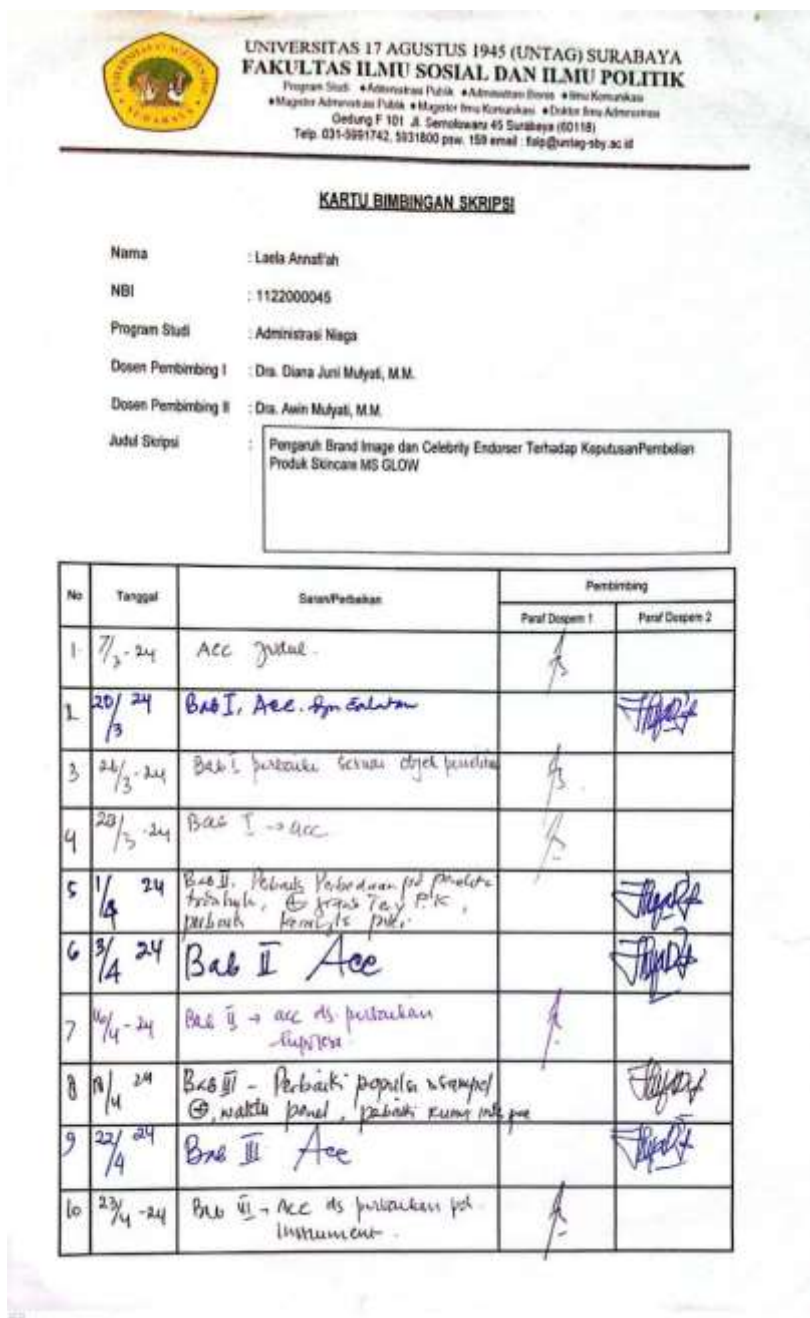 UNIVERSITAS 17 AGUSTUS 1945 (UNTAG) SURABAYA
FAKULTAS ILMU SOSIAL DAN ILMU POLITIK
Program Studi ♦Administrasi Publik ♦Administrasi Bisnis ♦Ilmu Komunikasi
♦Magister Administrasi Publik ♦Magister Ilmu Komunikasi ♦Doktor Ilmu Administrasi
Gedung F 101 Jl. Semolowaru 45 Surabaya (60118)
Telp. 031-5991742, 5931800 psw. 159 email : fisip@untag-sby.ac.id
KARTU BIMBINGAN SKRIPSI
Nama : Laela Annafi'ah
NBI : 1122000045
Program Studi : Administrasi Niaga
Dosen Pembimbing I : Dra. Diana Juni Mulyati, M.M.
Dosen Pembimbing II : Dra. Awin Mulyati, M.M.
Judul Skripsi : Pengaruh Brand Image dan Celebrity Endorser Terhadap KeputusanPembelian
Produk Skincare MS GLOW
No Tanggal Saran/Perbaikan Pembimbing
Paraf Dospem 1 Paraf Dospem 2
1. 7/3-24 Acc Judul.
2 20/3 24 Bab I, Acc.
3 26/3-24 Bab I perbaiki sesuai objek penelitian
4 28/3-24 Bab I → acc
5 1/4 24 Bab II.
perbaiki
6 3/4 24 Bab II Acc
7 16/4-24 Bab II → acc ds perbaikan
hipotesa
8 18/4 24 Bab III - Perbaiki populasi sampel
waktu penel, perbaiki
9 22/4 24 Bab III Acc
10 23/4-24 Bab III → Acc ds perbaikan pd
instrument.